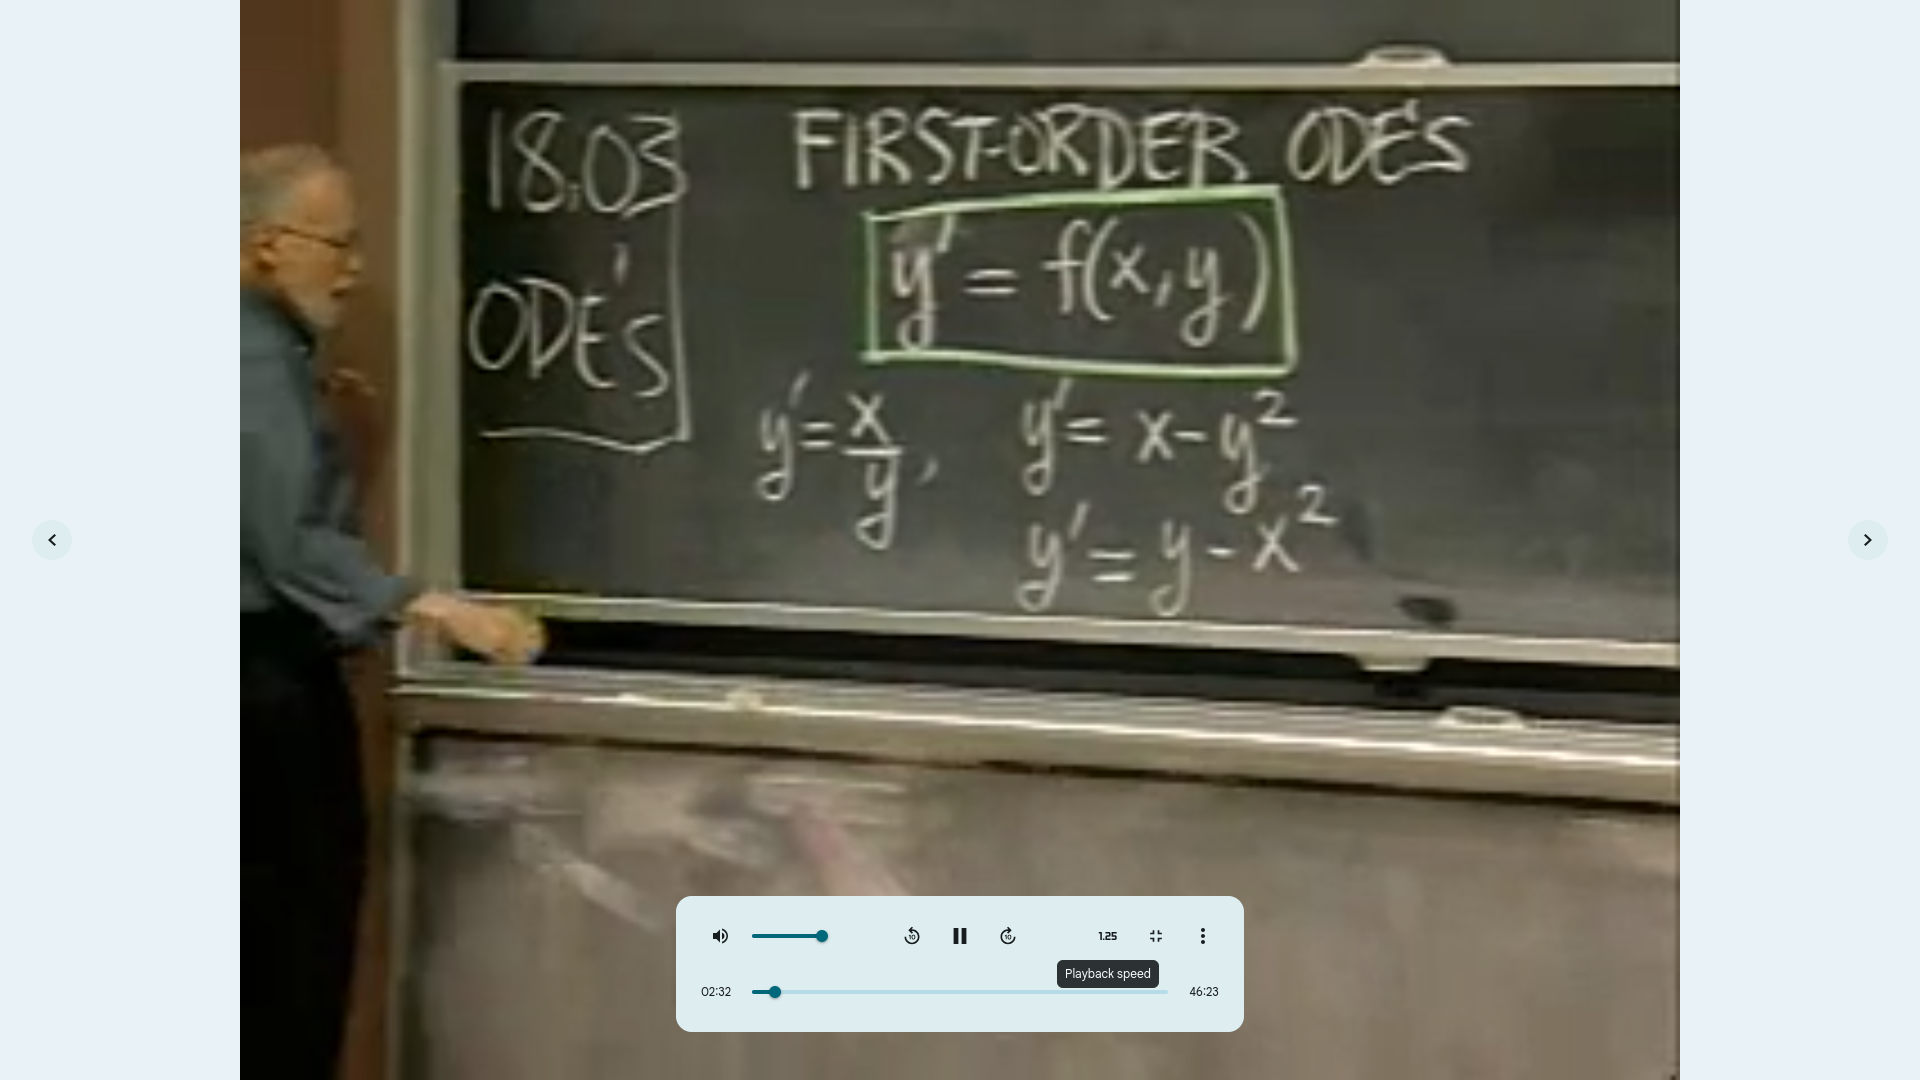 18.03
ODE'S
FIRST-ORDER ODE'S
y' = f(x, y)
y' = x/y, y' = x - y²
y' = y - x²
1.25
Playback speed
02:32
46:23